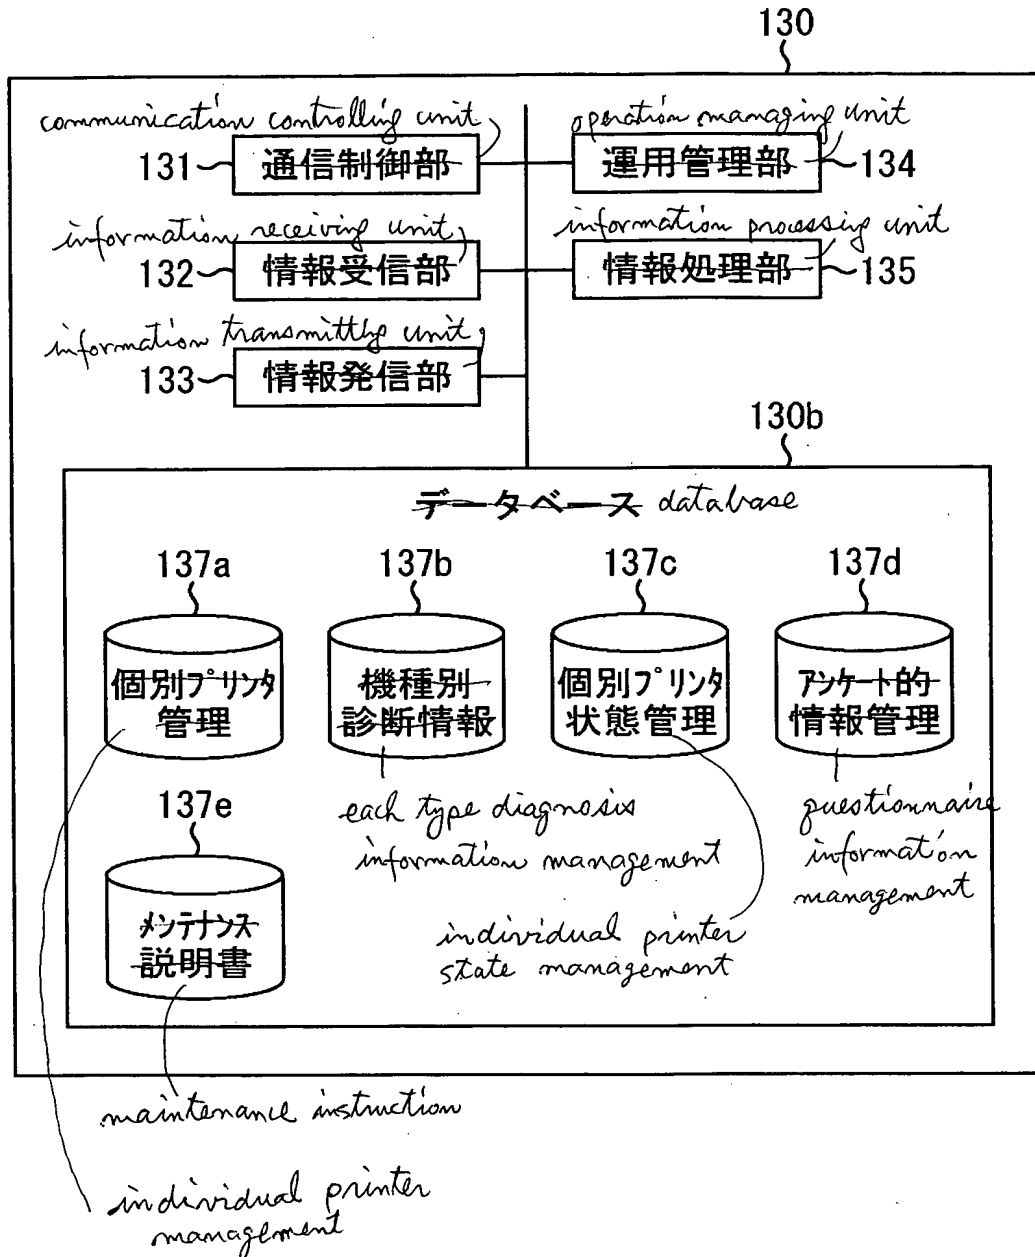 130
communication controlling unit
operation managing unit
131 通信制御部
運用管理部 134
information receiving unit
information processing unit
132 情報受信部
情報処理部 135
information transmitting unit
133 情報発信部
130b
データベース database
137a 137b 137c 137d
個別プリンタ
管理
機種別
診断情報
個別プリンタ
状態管理
アンケート的
情報管理
137e
each type diagnosis
information management
questionnaire
information
management
メンテナンス
説明書
individual printer
state management
maintenance instruction
individual printer
management